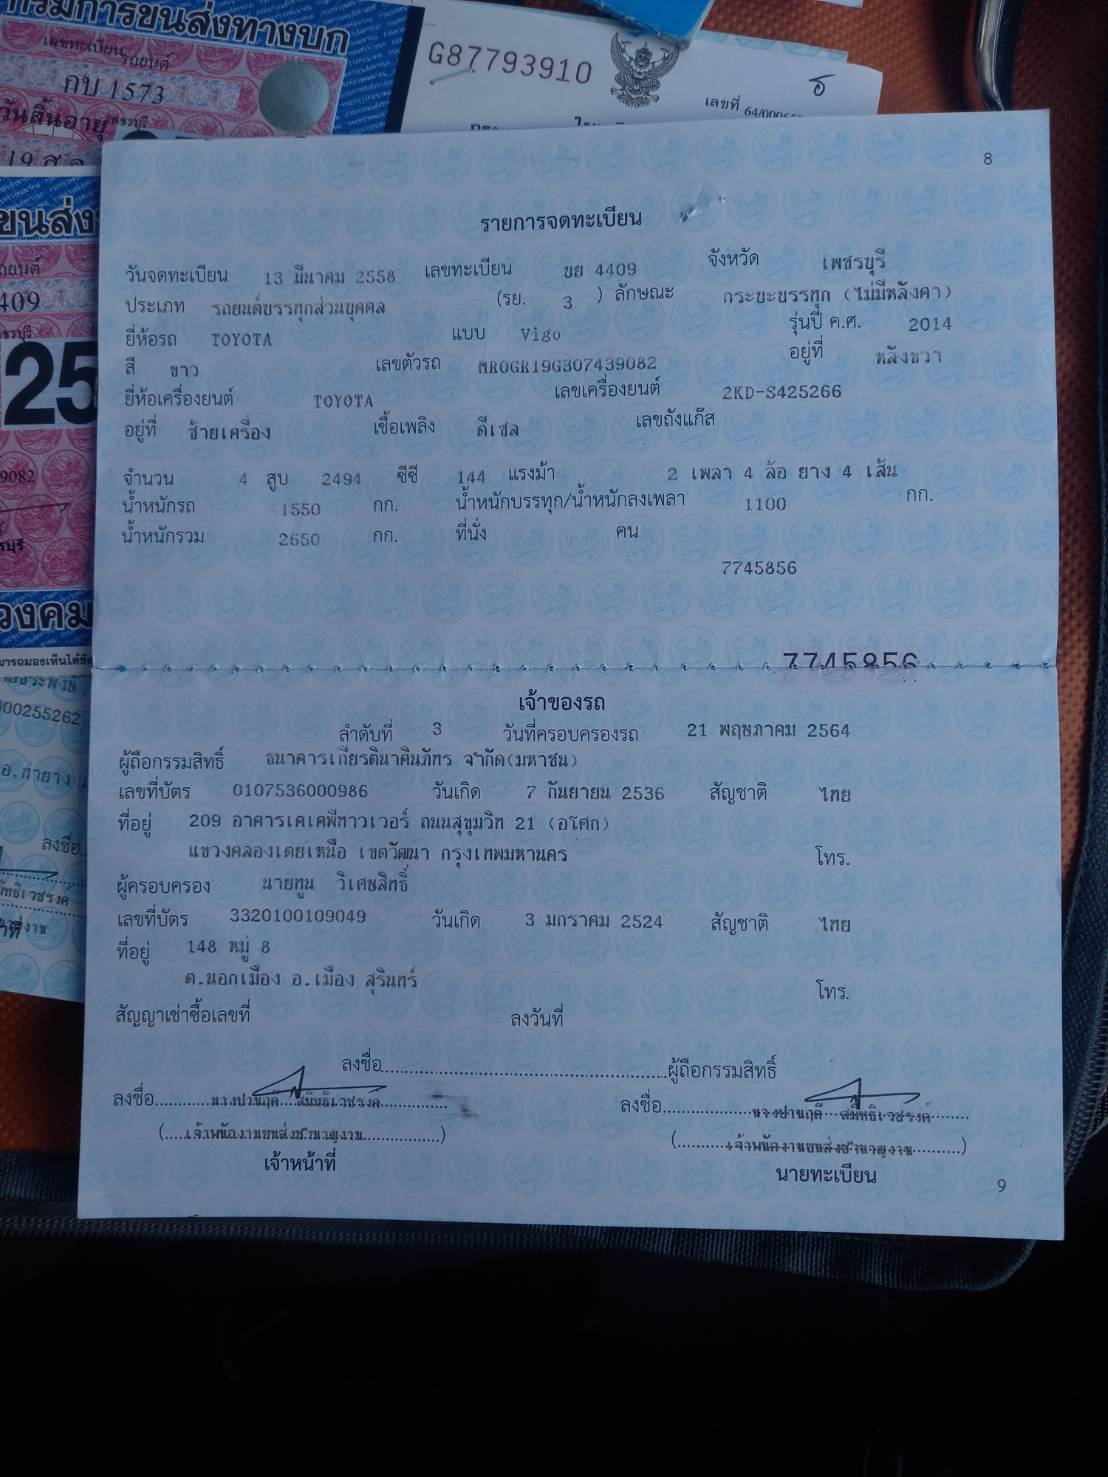 กรมการขนส่งทางบก
เลขทะเบียนรถยนต์
กบ 1573
วันสิ้นอายุ
G87793910
เลขที่
ขนส่ง
25
8
รายการจดทะเบียน
วันจดทะเบียน 13 มีนาคม 2558 เลขทะเบียน ขย 4409 จังหวัด เพชรบุรี
ประเภท รถยนต์บรรทุกส่วนบุคคล (รย. 3 ) ลักษณะ กระบะบรรทุก (ไม่มีหลังคา)
ยี่ห้อรถ TOYOTA แบบ Vigo รุ่นปี ค.ศ. 2014
สี ขาว เลขตัวรถ MR0GR19G307439082 อยู่ที่ หลังขวา
ยี่ห้อเครื่องยนต์ TOYOTA เลขเครื่องยนต์ 2KD-S425266
อยู่ที่ ซ้ายเครื่อง เชื้อเพลิง ดีเซล เลขถังแก๊ส
จำนวน 4 สูบ 2494 ซีซี 144 แรงม้า 2 เพลา 4 ล้อ ยาง 4 เส้น
น้ำหนักรถ 1550 กก. น้ำหนักบรรทุก/น้ำหนักลงเพลา 1100 กก.
น้ำหนักรวม 2650 กก. ที่นั่ง คน
7745856
7745856
เจ้าของรถ
ลำดับที่ 3 วันที่ครอบครองรถ 21 พฤษภาคม 2564
ผู้ถือกรรมสิทธิ์ ธนาคารเกียรตินาคินภัทร จำกัด(มหาชน)
เลขที่บัตร 0107536000986 วันเกิด 7 กันยายน 2536 สัญชาติ ไทย
ที่อยู่ 209 อาคารเคเคพีทาวเวอร์ ถนนสุขุมวิท 21 (อโศก)
แขวงคลองเตยเหนือ เขตวัฒนา กรุงเทพมหานคร โทร.
ผู้ครอบครอง นายทูน วิเศษสิทธิ์
เลขที่บัตร 3320100109049 วันเกิด 3 มกราคม 2524 สัญชาติ ไทย
ที่อยู่ 148 หมู่ 8
ต.นอกเมือง อ.เมือง สุรินทร์ โทร.
สัญญาเช่าซื้อเลขที่ ลงวันที่
ลงชื่อ ผู้ถือกรรมสิทธิ์
ลงชื่อ ลงชื่อ
(....เจ้าพนักงานขนส่งชำนาญงาน....) (....เจ้าพนักงานขนส่งชำนาญงาน....)
เจ้าหน้าที่ นายทะเบียน
9